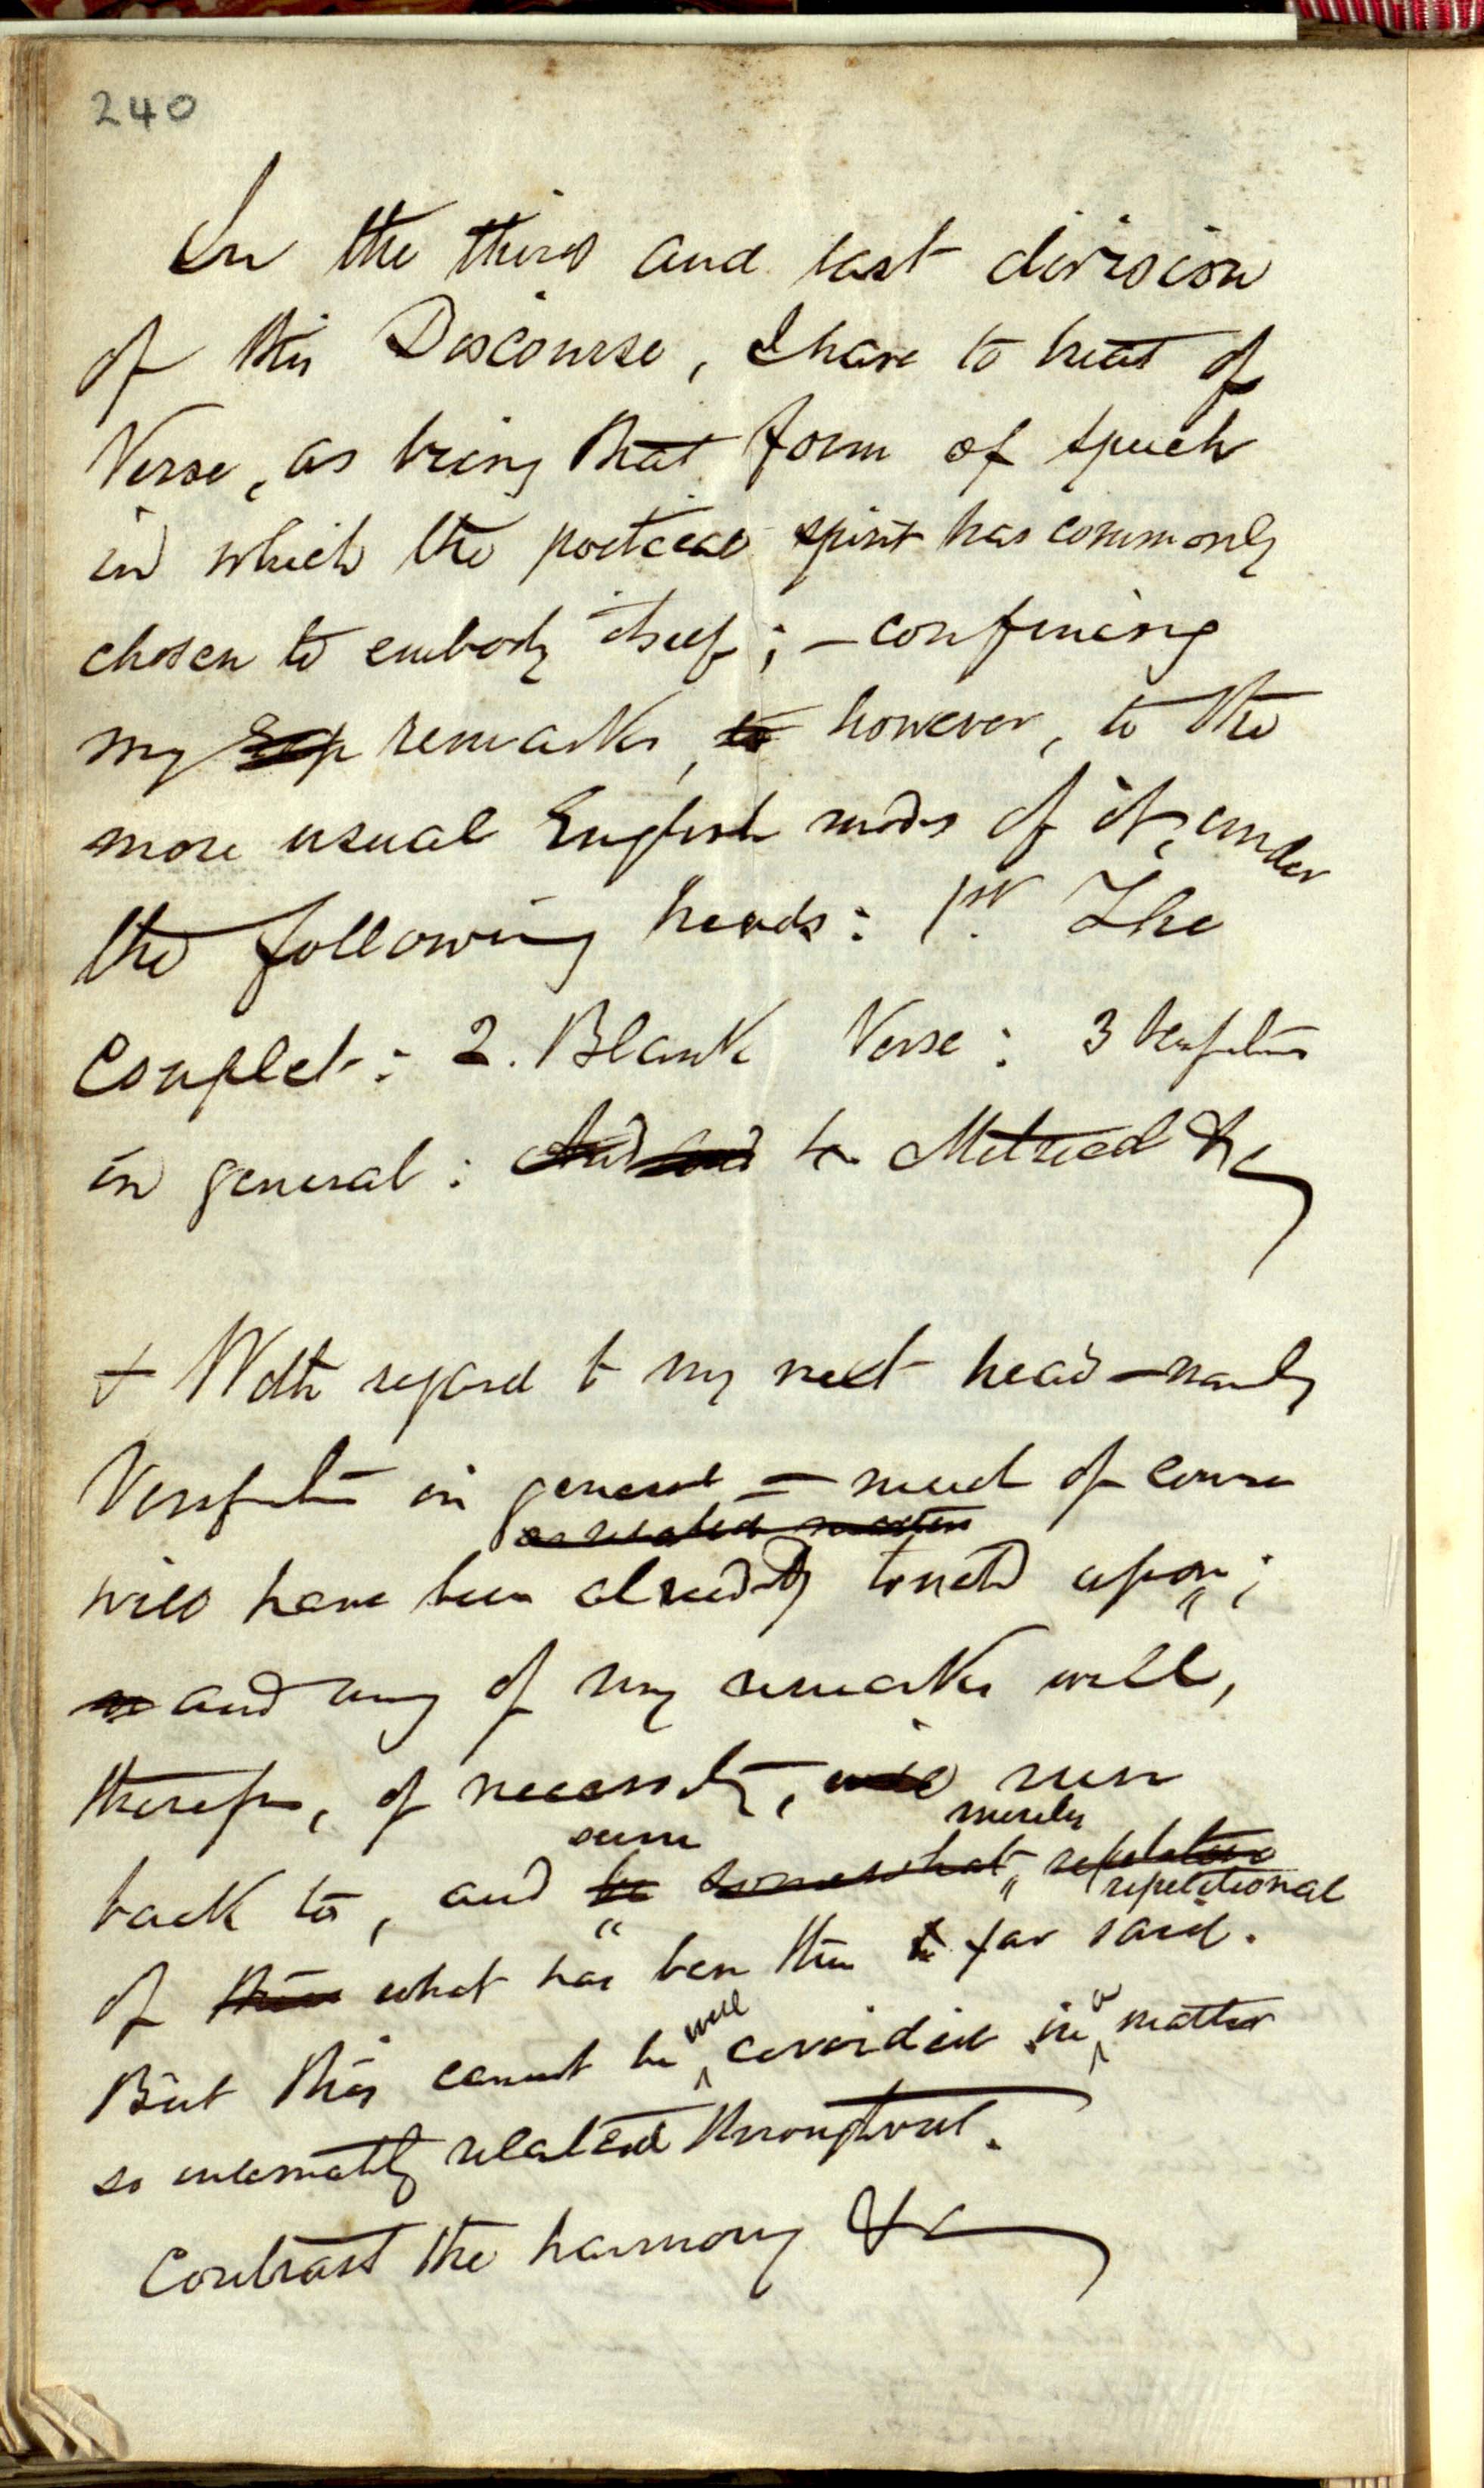 240
In the third and last division
of this Discourse, I have to treat of
Verse, as being that form of speech
in which the poetical spirit has commonly
chosen to embody itself; – confining
my remarks, to however, to the
more usual English modes of it, under
the following heads: 1st. The
Couplet: 2. Blank Verse: 3
in general: And and 4. Metrical &c
+ With regard to my next head – namely
in general – much of course
as related matters
will have been already touched upon;
and many of my remarks will,
therefore, of necessity, will run
seem merely
back to, and be somewhat repetition
repetitional
of what has been thus far said.
well a
But this cannot be avoided in matter
so intimately related throughout.
Contrast the harmony &c